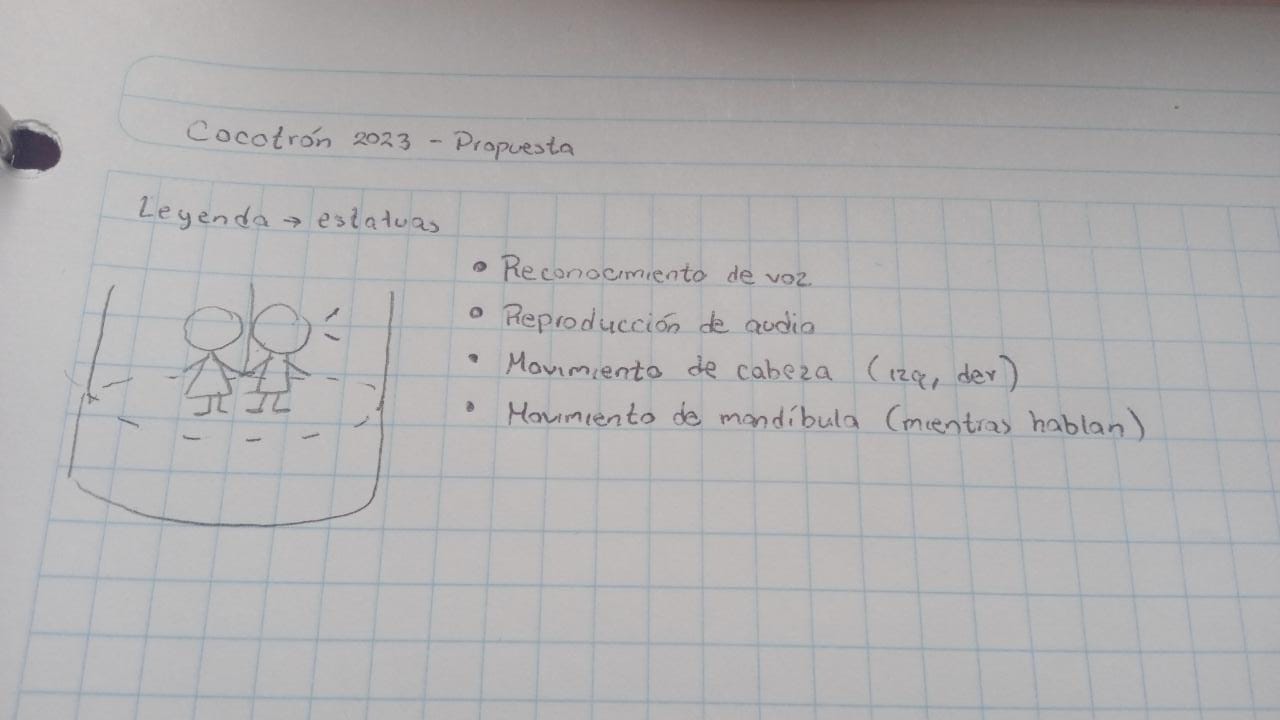 Cocotrón 2023 - Propuesta
Leyenda → estatuas
• Reconocimiento de voz
• Reproducción de audio
• Movimiento de cabeza (izq, der)
• Movimiento de mandíbula (mientras hablan)